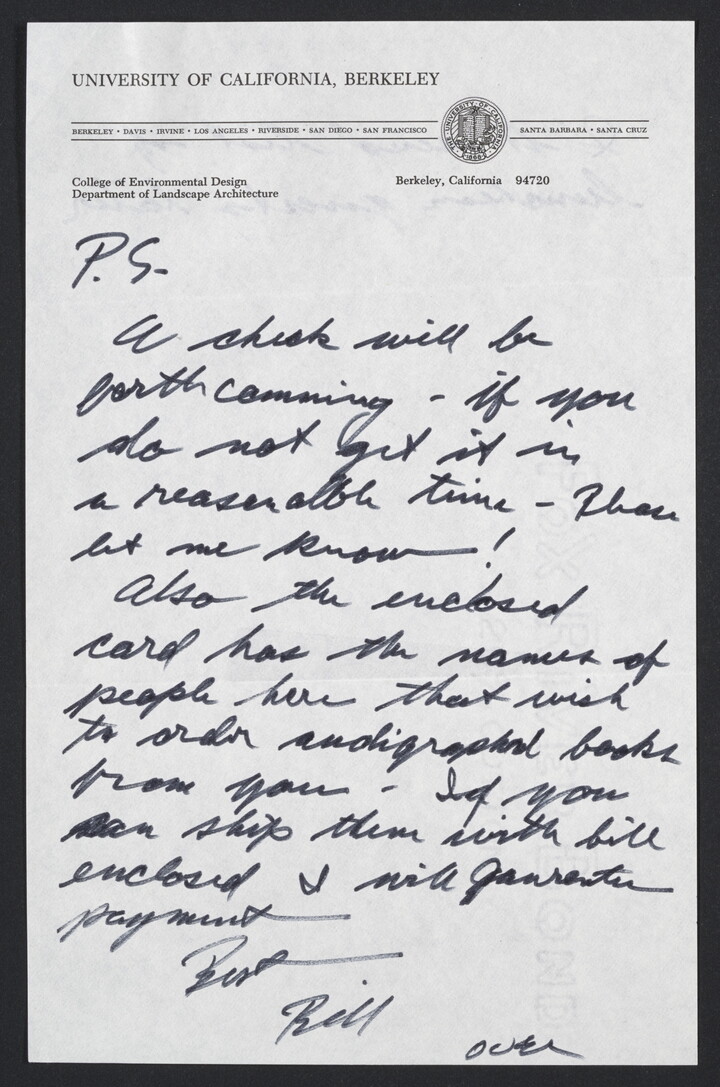 UNIVERSITY OF CALIFORNIA, BERKELEY
BERKELEY • DAVIS • IRVINE • LOS ANGELES • RIVERSIDE • SAN DIEGO • SAN FRANCISCO
SANTA BARBARA • SANTA CRUZ
College of Environmental Design
Department of Landscape Architecture
Berkeley, California 94720
P.S.
A check will be
forthcomming - if you
do not get it in
a reasonable time - Please
let me know!
Also the enclosed
card has the names of
people here that wish
to order audigraphed books
from you - If you
can ship them with bill
enclosed I will gaurentee
payment
Best
Bill
over